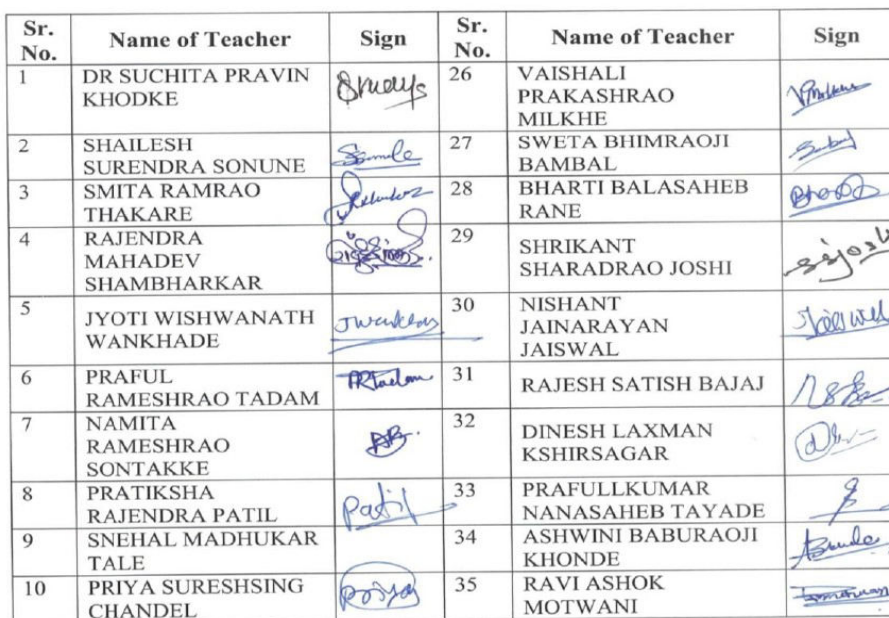 Sr. No. Name of Teacher Sign Sr. No. Name of Teacher Sign
1 DR SUCHITA PRAVIN KHODKE 26 VAISHALI PRAKASHRAO MILKHE
2 SHAILESH SURENDRA SONUNE 27 SWETA BHIMRAOJI BAMBAL
3 SMITA RAMRAO THAKARE 28 BHARTI BALASAHEB RANE
4 RAJENDRA MAHADEV SHAMBHARKAR 29 SHRIKANT SHARADRAO JOSHI ssjoshi
5 JYOTI WISHWANATH WANKHADE 30 NISHANT JAINARAYAN JAISWAL
6 PRAFUL RAMESHRAO TADAM 31 RAJESH SATISH BAJAJ
7 NAMITA RAMESHRAO SONTAKKE 32 DINESH LAXMAN KSHIRSAGAR
8 PRATIKSHA RAJENDRA PATIL Patil 33 PRAFULLKUMAR NANASAHEB TAYADE
9 SNEHAL MADHUKAR TALE 34 ASHWINI BABURAOJI KHONDE
10 PRIYA SURESHSING CHANDEL Priya 35 RAVI ASHOK MOTWANI